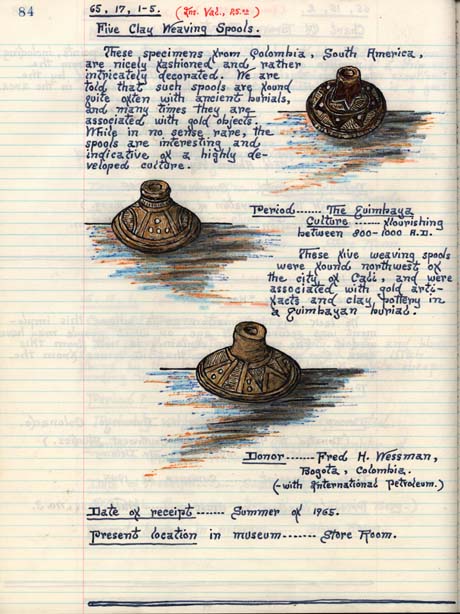 84
65, 17, 1-5. (Ins. Val., $5.00)
Five Clay Weaving Spools.
These specimens from Colombia, South America,
are nicely fashioned and rather
intricately decorated. We are
told that such spools are found
quite often with ancient burials,
and many times they are
associated with gold objects.
While in no sense rare, the
spools are interesting and
indicative of a highly de-
veloped culture.
Period ------- The Quimbaya
Culture ------- flourishing
between 800-1000 A.D.
These five weaving spools
were found northwest of
the city of Cali, and were
associated with gold arti-
facts and clay pottery in
a Quimbayan burial.
Donor ------- Fred H. Wessman,
Bogota, Colombia.
(-with International Petroleum.)
Date of receipt ------- Summer of 1965.
Present location in museum ------- Store Room.